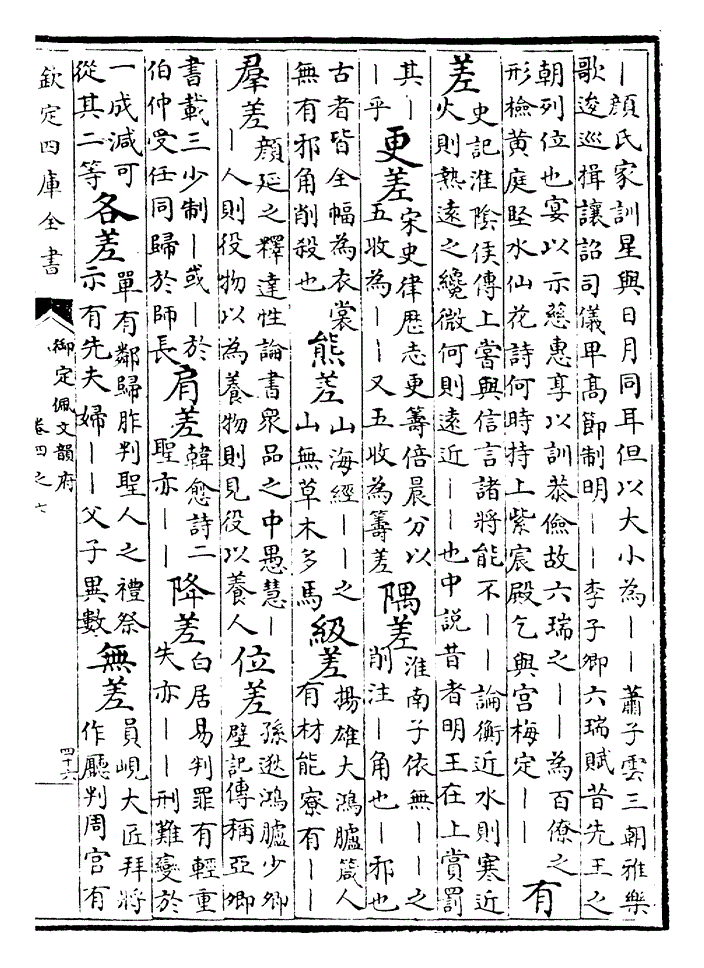 ｜顔氏家訓星與日月同耳但以大小為｜｜蕭子雲三朝雅樂
歌逡巡揖讓詔司儀卑髙節制明｜｜李子卿六瑞賦昔先王之
朝列位也宴以示慈惠享以訓恭儉故六瑞之｜｜為百僚之
形檢黄庭堅水仙花詩何時持上紫宸殿乞與宫梅定｜｜
有
差
史記淮陰侯傳上嘗與信言諸將能不｜｜論衡近水則寒近
火則熱逺之纔微何則逺近｜｜也中説昔者明王在上賞罰
其｜
｜乎
更差
宋史律歷志更籌倍晨分以
五收為｜｜又五收為籌差
隅差
淮南子依無｜｜之
削注｜角也｜邪也
古者皆全幅為衣裳
無有邪角削殺也
熊差
山海經｜｜之
山無草木多馬
級差
揚雄大鴻臚箴人
有材能寮有｜｜
羣差
顔延之釋達性論書衆品之中愚慧｜
｜人則役物以為養物則見役以養人
位差
孫逖鴻臚少卿
壁記傳稱亞卿
書載三少制｜或｜於
伯仲受任同歸於師長
肩差
韓愈詩二
聖亦｜｜
降差
白居易判罪有輕重
失亦｜｜刑難變於
一成減可
從其二等
各差
單有鄰歸胙判聖人之禮祭
示有先夫婦｜｜父子異數
無差
員峴大匠拜將
作廳判周宫有
欽定四庫全書
御定佩文韻府
卷四之七
四十六